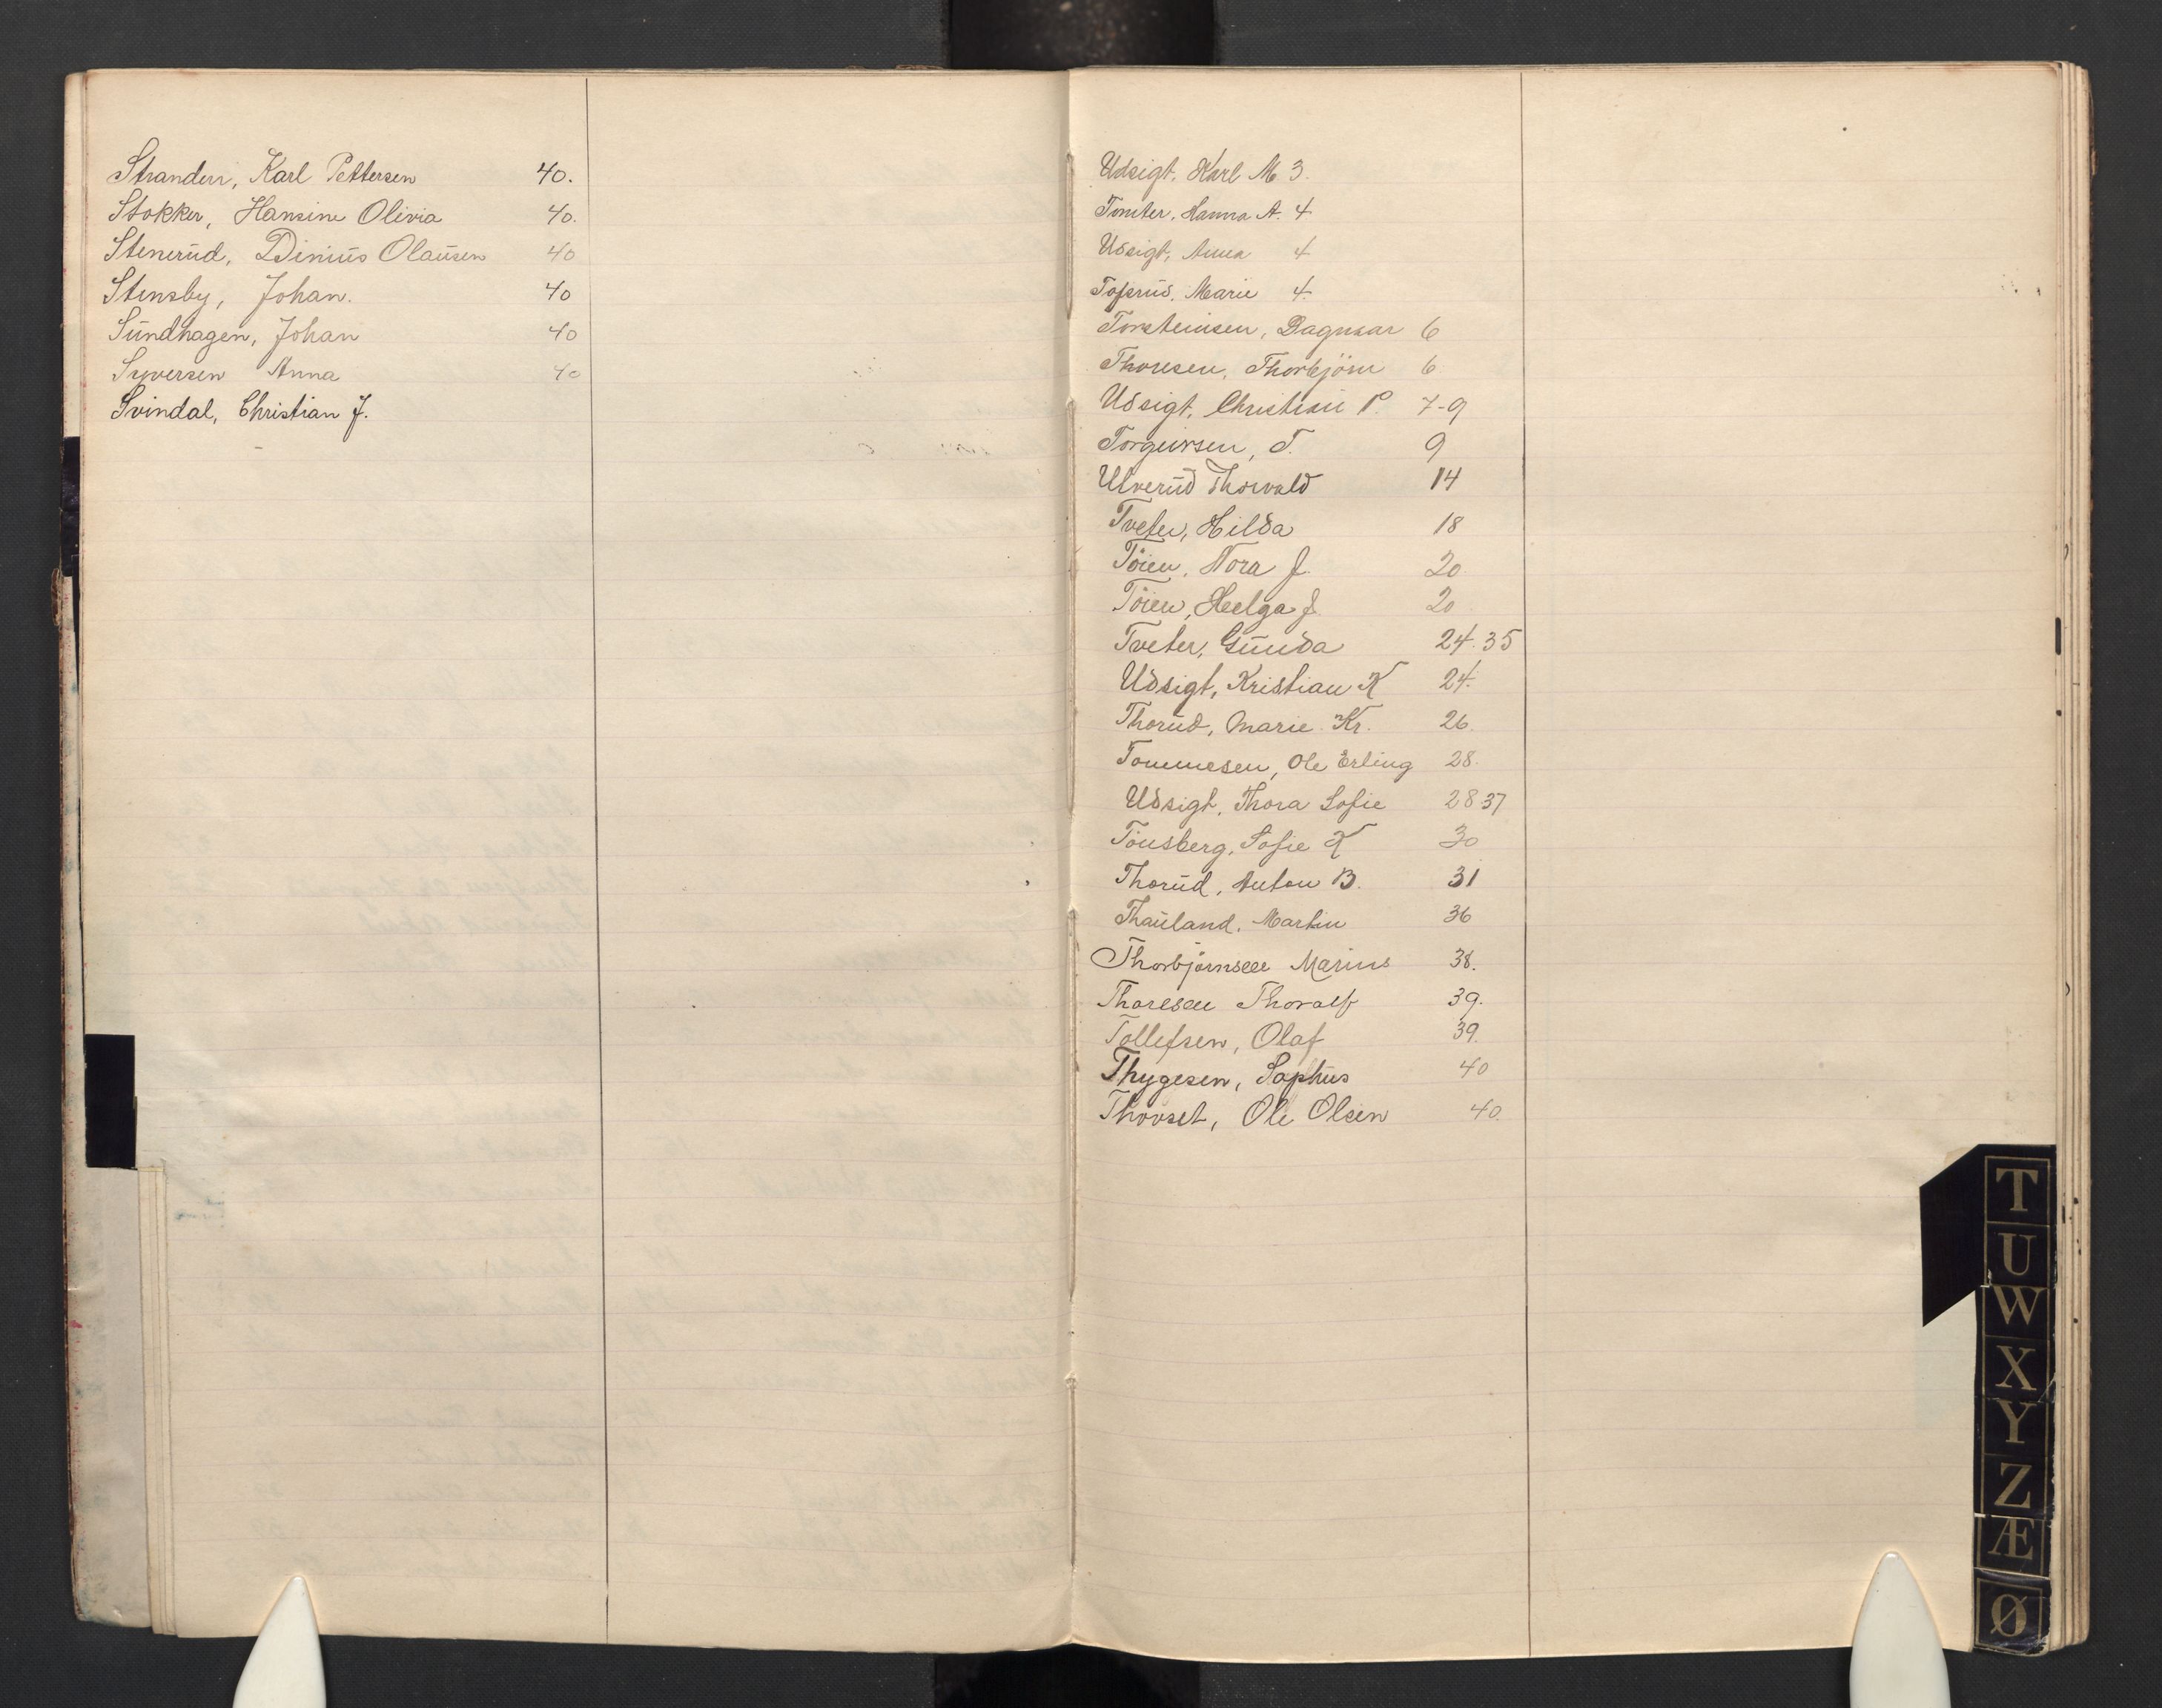 Stranden, Karl Pettersen 40.
Stokker, Hansine Olivia 40.
Stenerud, Dinius Olausen 40
Stensby, Johan. 40
Sundhagen, Johan 40
Syversen Anna 40
Svindal, Christian J.
Udsigt, Karl M 3.
Tomter, Hanna A. 4
Udsigt, Anna 4
Toprud, Marie 4.
Torsteinsen, Dagmar 6
Thonsen, Thorbjörn 6
Udsigt, Christian P. 7-9
Torgeirsen, T. 9
Ulverud Thorvald 14
Tveter, Hilda 18
Töien, Nora J. 20
Töien, Helga J. 20
Tveter, Gunda 24.35
Udsigt, Kristian K 24.
Thorud, Marie Kr. 26.
Tommesen, Ole Erling 28.
Udsigt, Thora Sofie 28 37
Tönsberg, Sofie K 30
Thorud, Anton B. 31
Thauland, Martin 36
Thorbjörnsen Marius 38.
Thoresen Thoralf 39.
Tollefsen, Olaf 39.
Thygesen, Sophus 40
Thorset, Ole Olsen 40.
T
U
W
X
Y
Z
Æ
Ø